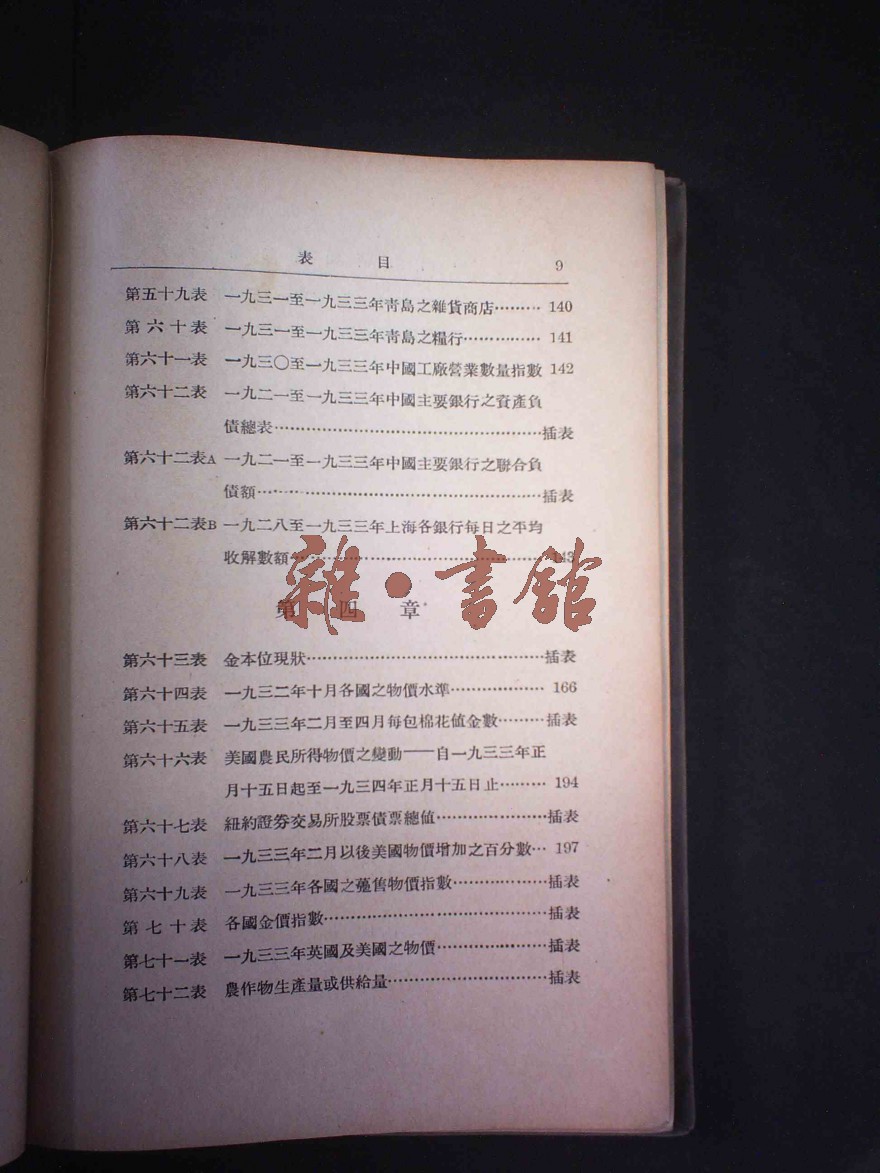 表 目 9
第五十九表 一九三一至一九三三年靑島之雜貨商店……… 140
第六十表 一九三一至一九三三年靑島之糧行…………… 141
第六十一表 一九三〇至一九三三年中國工廠營業數量指數 142
第六十二表 一九二一至一九三三年中國主要銀行之資產負
債總表……………………………………………插表
第六十二表A 一九二一至一九三三年中國主要銀行之聯合負
債額………………………………………………插表
第六十二表B 一九二八至一九三三年上海各銀行每日之平均
收解數額…………………………………………143
雜·書館
第四章
第六十三表 金本位現狀………………………………………插表
第六十四表 一九三二年十月各國之物價水準……………… 166
第六十五表 一九三三年二月至四月每包棉花値金數………插表
第六十六表 美國農民所得物價之變動——自一九三三年正
月十五日起至一九三四年正月十五日止……… 194
第六十七表 紐約證券交易所股票債票總値…………………插表
第六十八表 一九三三年二月以後美國物價增加之百分數… 197
第六十九表 一九三三年各國之躉售物價指數………………插表
第七十表 各國金價指數……………………………………插表
第七十一表 一九三三年英國及美國之物價…………………插表
第七十二表 農作物生產量或供給量…………………………插表